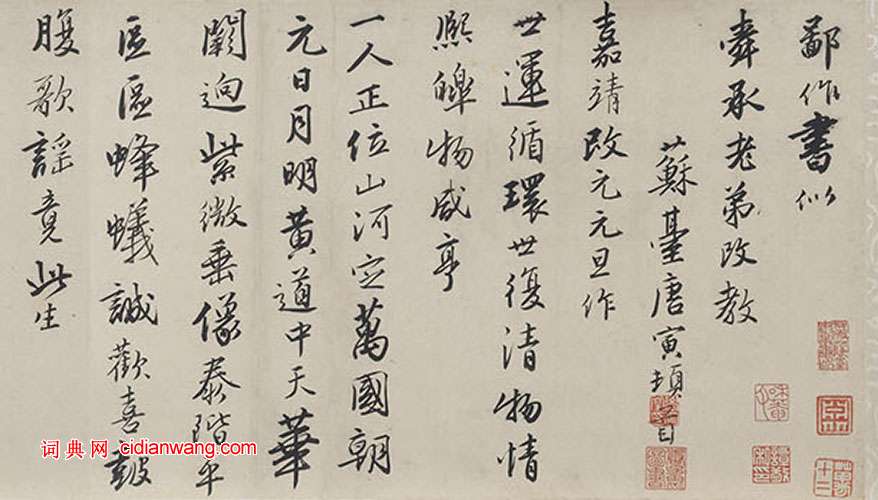 鄙作書似
舜承老弟改教
蘇臺唐寅頓首
嘉靖改元元旦作
世運循環世復清物情
熙皞物咸亨
一人正位山河定萬國朝
元日月明黄道中天華
闕迥紫微垂像泰階平
區區蜂蟻誠歡喜鼓
腹歌謡竟此生
词典网 cidianwang.com